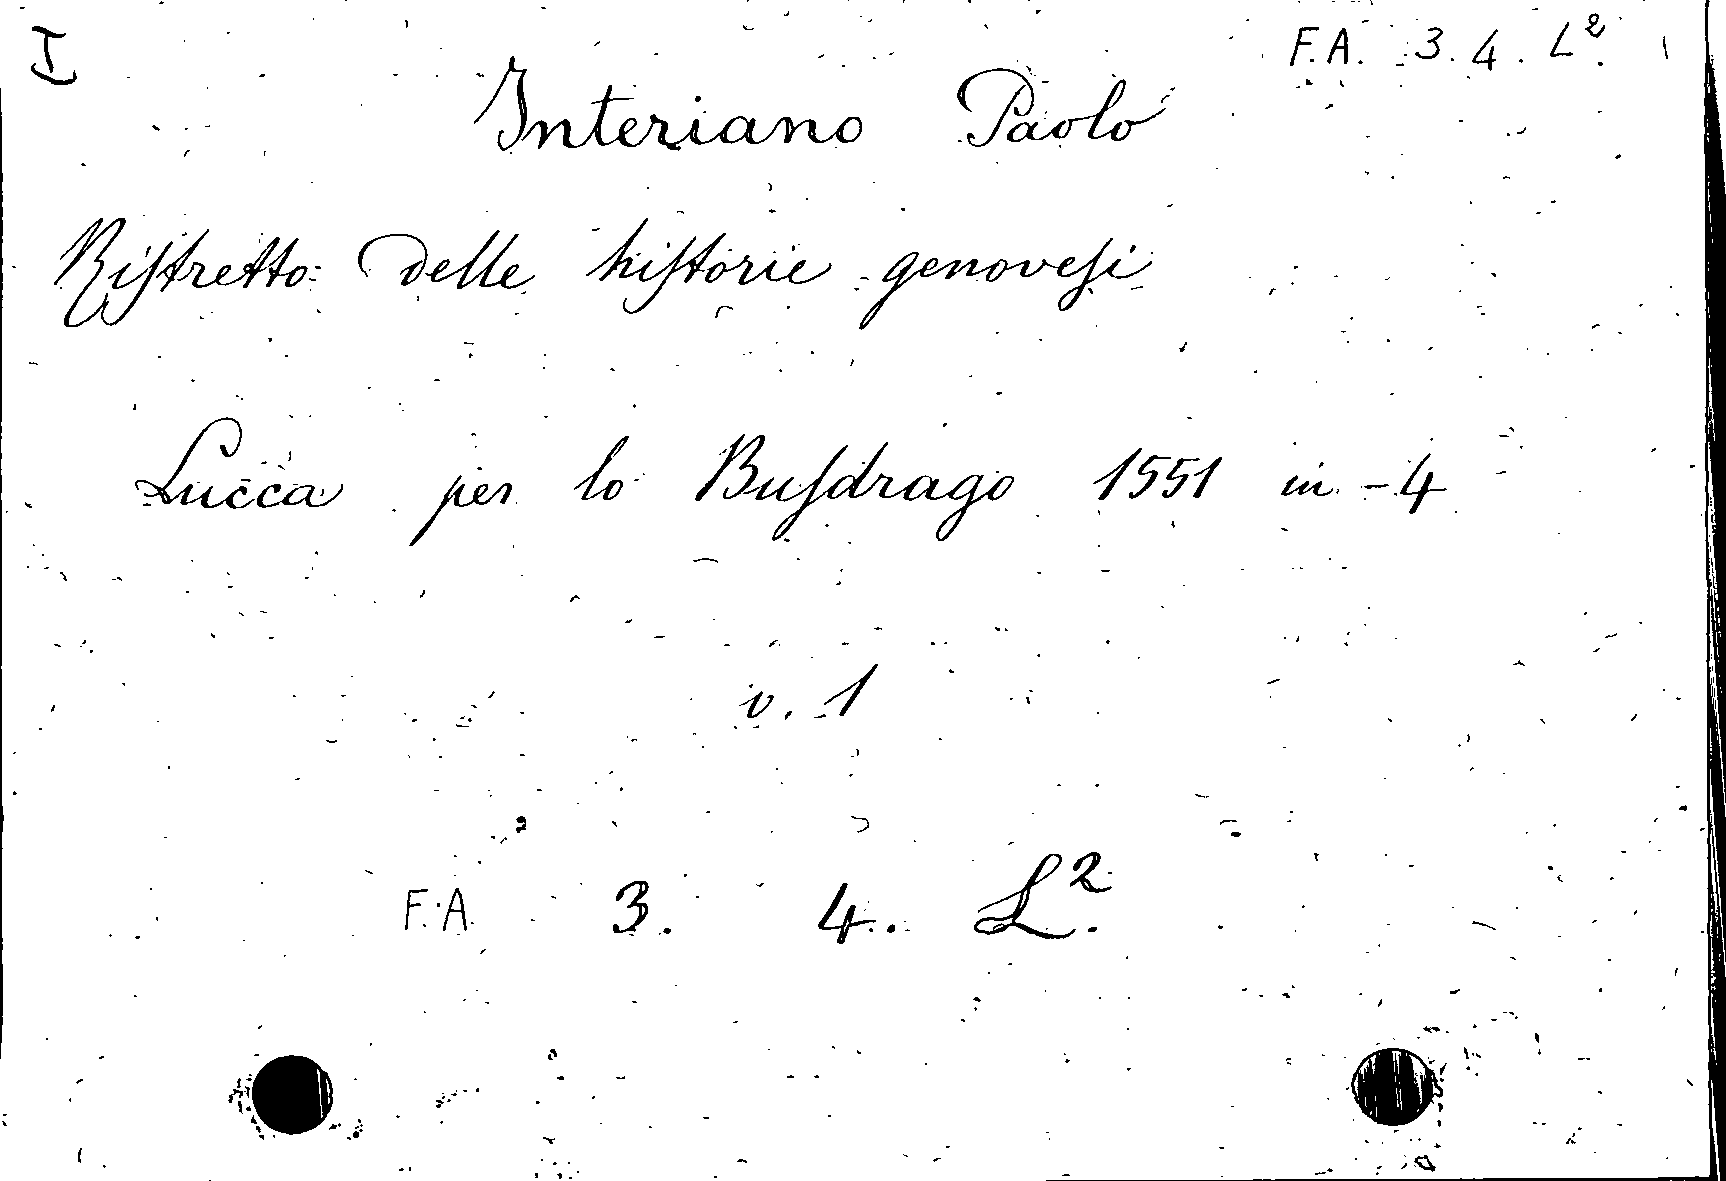 I
F.A. 3. 4. L².
Interiano Paolo
Ristretto delle historie genovesi
Lucca per lo Busdrago 1551 in-4
v. 1
F.A. 3. 4. L².